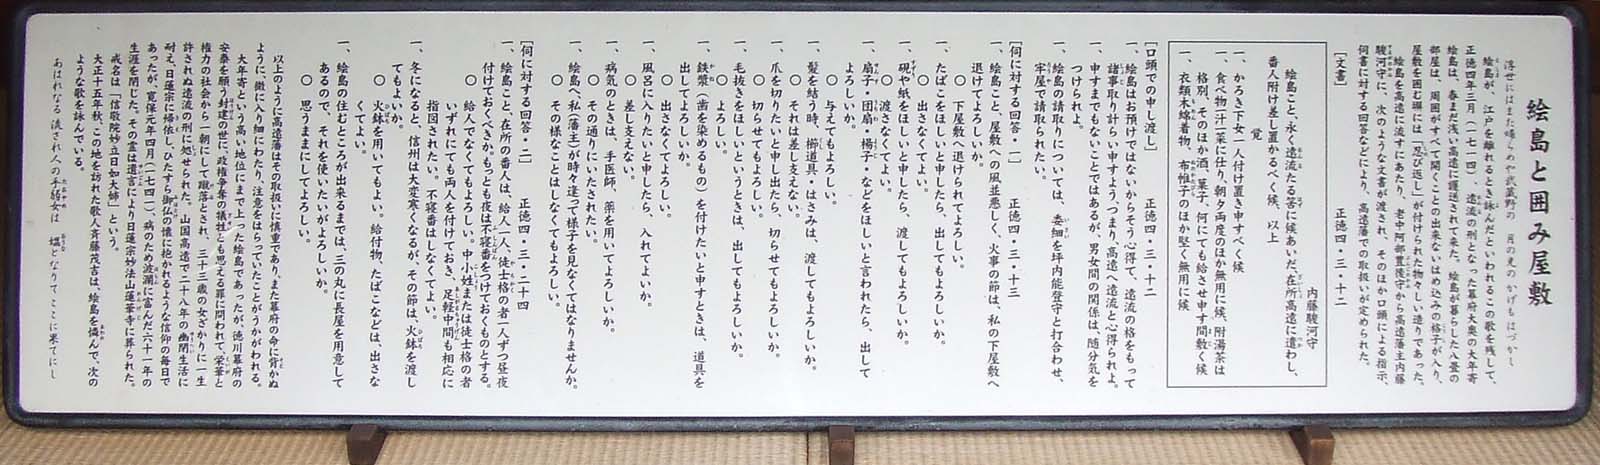 絵島と囲み屋敷
浮世にはまた帰らめや武蔵野の 月の光のかげもはづかし
絵島が、江戸を離れるとき詠んだといわれるこの歌を残して、
正徳四年三月（一七一四）、遠流の刑となった幕府大奥の大年寄
絵島は、春まだ浅い高遠に護送されて来た。絵島が暮らした八畳の
部屋は、周囲がすべて開くことの出来ないはめ込みの格子が入り、
屋敷を囲む塀には「忍び返し」が付けられた物々しい造りであった。
絵島を高遠に流すにあたり、老中阿部豊後守から高遠藩主内藤
駿河守に、次のような文書が渡され、そのほか口頭による指示、
伺書に対する回答などにより、高遠藩での取扱いが定められた。
［文書］ 正徳四・三・十二
内藤駿河守
絵島こと、永く遠流たる筈に候あいだ、在所高遠に遣わし、
番人附け差し置かるべく候、以上
覚
一、かろき下女一人付け置き申すべく候
一、食べ物一汁一菜に仕り、朝夕両度のほか無用に候、附湯茶は
格別、そのほか酒、菓子、何にても給させ申す間敷く候
一、衣類木綿着物、布帷子のほか堅く無用に候
［口頭での申し渡し］ 正徳四・三・十二
一、絵島はお預けではないからそう心得て、遠流の格をもって
諸事取り計らい申すよう、つまり高遠へ遠流と心得られよ。
一、申すまでもないことではあるが、男女間の関係は、随分気を
つけられよ。
一、絵島の請取りについては、委細を坪内能登守と打合わせ、
牢屋で請取られたい。
［伺に対する回答・一］ 正徳四・三・十三
一、絵島こと、屋敷への風並悪しく、火事の節は、私の下屋敷へ
退けてよろしいか。
○ 下屋敷へ退けられてよろしい。
一、たばこをほしいと申し出たら、出してもよろしいか。
○ 出さなくてよろしい。
一、硯や紙をほしいと申したら、渡してもよろしいか。
○ 渡さなくてよい。
一、扇子・団扇・楊子・などをほしいと言われたら、出して
よろしいか。
○ 与えてもよろしい。
一、髪を結う時、櫛道具・はさみは、渡してもよろしいか。
○ それは差し支えない。
一、爪を切りたいと申し出たら、切らせてもよろしいか。
○ 切らせてもよろしい。
一、毛抜きをほしいというときは、出してもよろしいか。
○ よろしい。
一、鉄漿（歯を染めるもの）を付けたいと申すときは、道具を
出してよろしいか。
○ 出さなくてよろしい。
一、風呂に入りたいと申したら、入れてよいか。
○ 差し支えない。
一、病気のときは、手医師、薬を用いてよろしいか。
○ その通りにいたされたい。
一、絵島へ、私（藩主）が時々逢って様子を見なくてはなりませんか。
○ その様なことはしなくてもよろしい。
［伺に対する回答・二］ 正徳四・三・二十四
一、絵島こと、在所の番人は、給人一人、徒士格の者一人ずつ昼夜
付けておくべきか。もっとも夜は不寝番をつけておくものとする。
○ 給人でなくてもよろしい。中小姓または徒士格の者
いずれにても両人を付けておき、足軽中間も相応に
指図されたい。不寝番はしなくてよい。
一、冬になると、信州は大変寒くなるが、その節は、火鉢を渡し
てもよいか。
○ 火鉢を用いてもよい。給付物、たばこなどは、出さな
くてよい。
一、絵島の住むところが出来るまでは、三の丸に長屋を用意して
あるので、それを使いたいがよろしいか。
○ 思うままにしてよろしい。
以上のように高遠藩はその取扱いに慎重であり、また幕府の命に背かぬ
ように、微に入り細にわたり、注意をはらっていたことがうかがわれる。
大年寄という高い地位にまで上った絵島であったが、徳川幕府の
安泰を願う封建の世に、政権争奪の犠牲とも思える罪に問われて、栄華と
権力の社会から一朝にして蹴落とされ、三十三歳の女ざかりに一生
許されぬ遠流の刑に処せられた。山国高遠で二十八年の幽閉生活に
耐え、日蓮宗に帰依し、ひたすら御仏の懐に抱かれるような信仰の毎日で
あったが、寛保元年四月（一七四一）、病のため波瀾に富んだ六十一年の
生涯を閉じた。その霊は遺言により日蓮宗妙法山蓮華寺に葬られた。
戒名は「信敬院妙立日如大姉」という。
大正十五年秋、この地を訪れた歌人斉藤茂吉は、絵島を憐んで、次の
ような歌を詠んでいる。
あはれなる 流され人の手弱女は 媼となりてここに果てにし